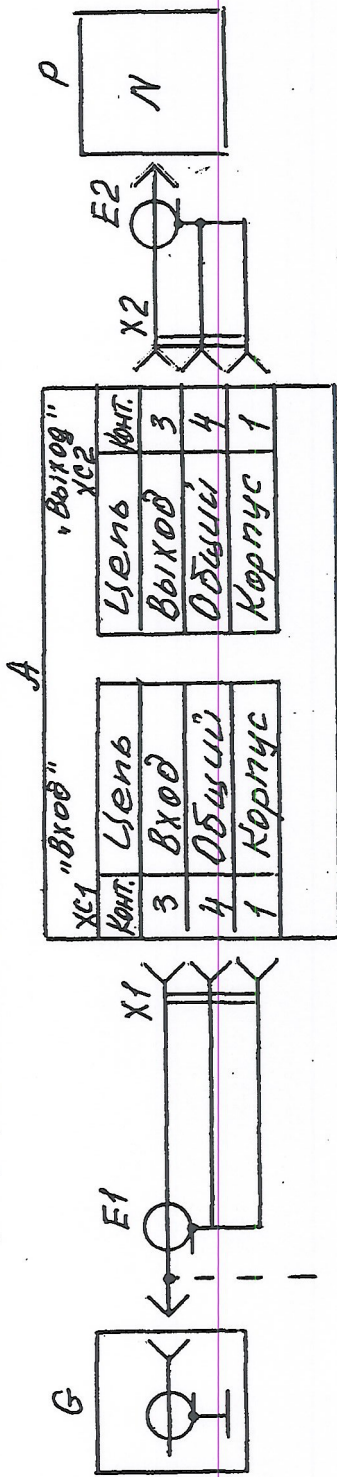 G
E1
X1
A
"Вход"
XC1
Конт. Цепь
3 Вход
4 Общий
1 Корпус
"Выход"
XC2
Цепь Конт.
Выход 3
Общий 4
Корпус 1
X2
E2
P
N